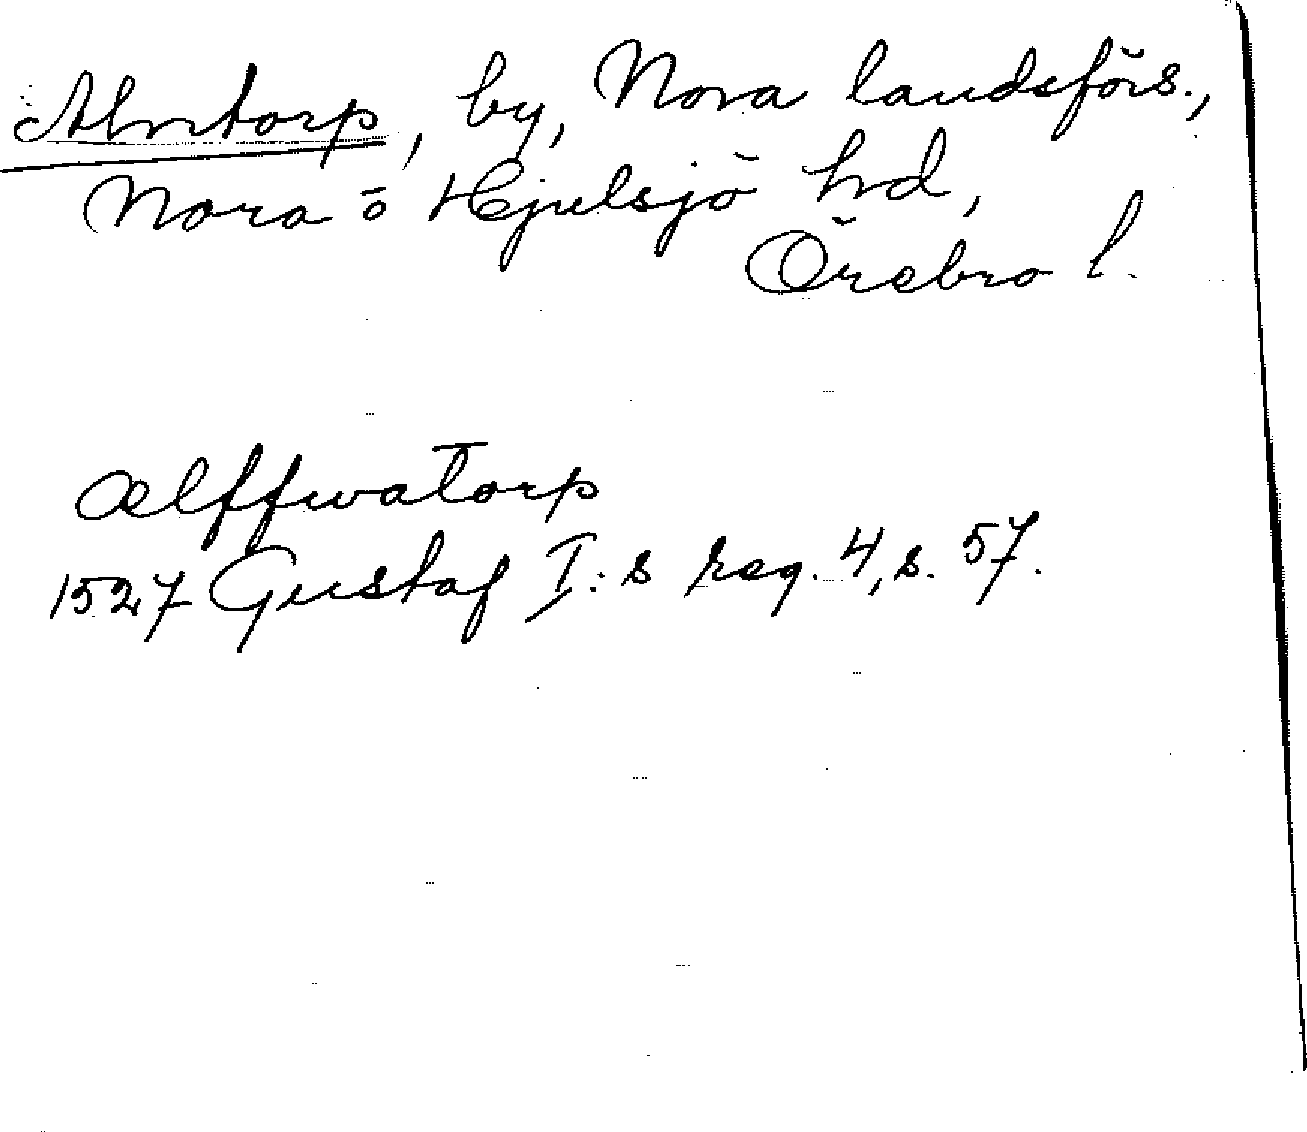 Älvtorp, by, Nora landsförs.,
Nora o Hjulsjö hd,
Örebro l.
ælffwatorp
1527 Gustaf I:s reg. 4, s. 57.